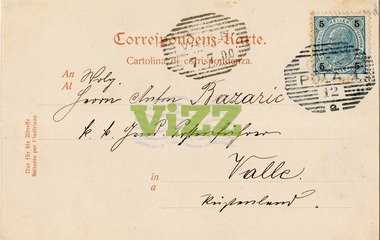 Correspondenz-Karte.
Cartolina di corrispondenza.
An
Al
Herrn Anton Bazaric
k. k.
ViZZ
in Valle.
a Küstenland.
Nur für die Adresse
Soltanto per l'indirizzo
5 5
POLA 1
12
a